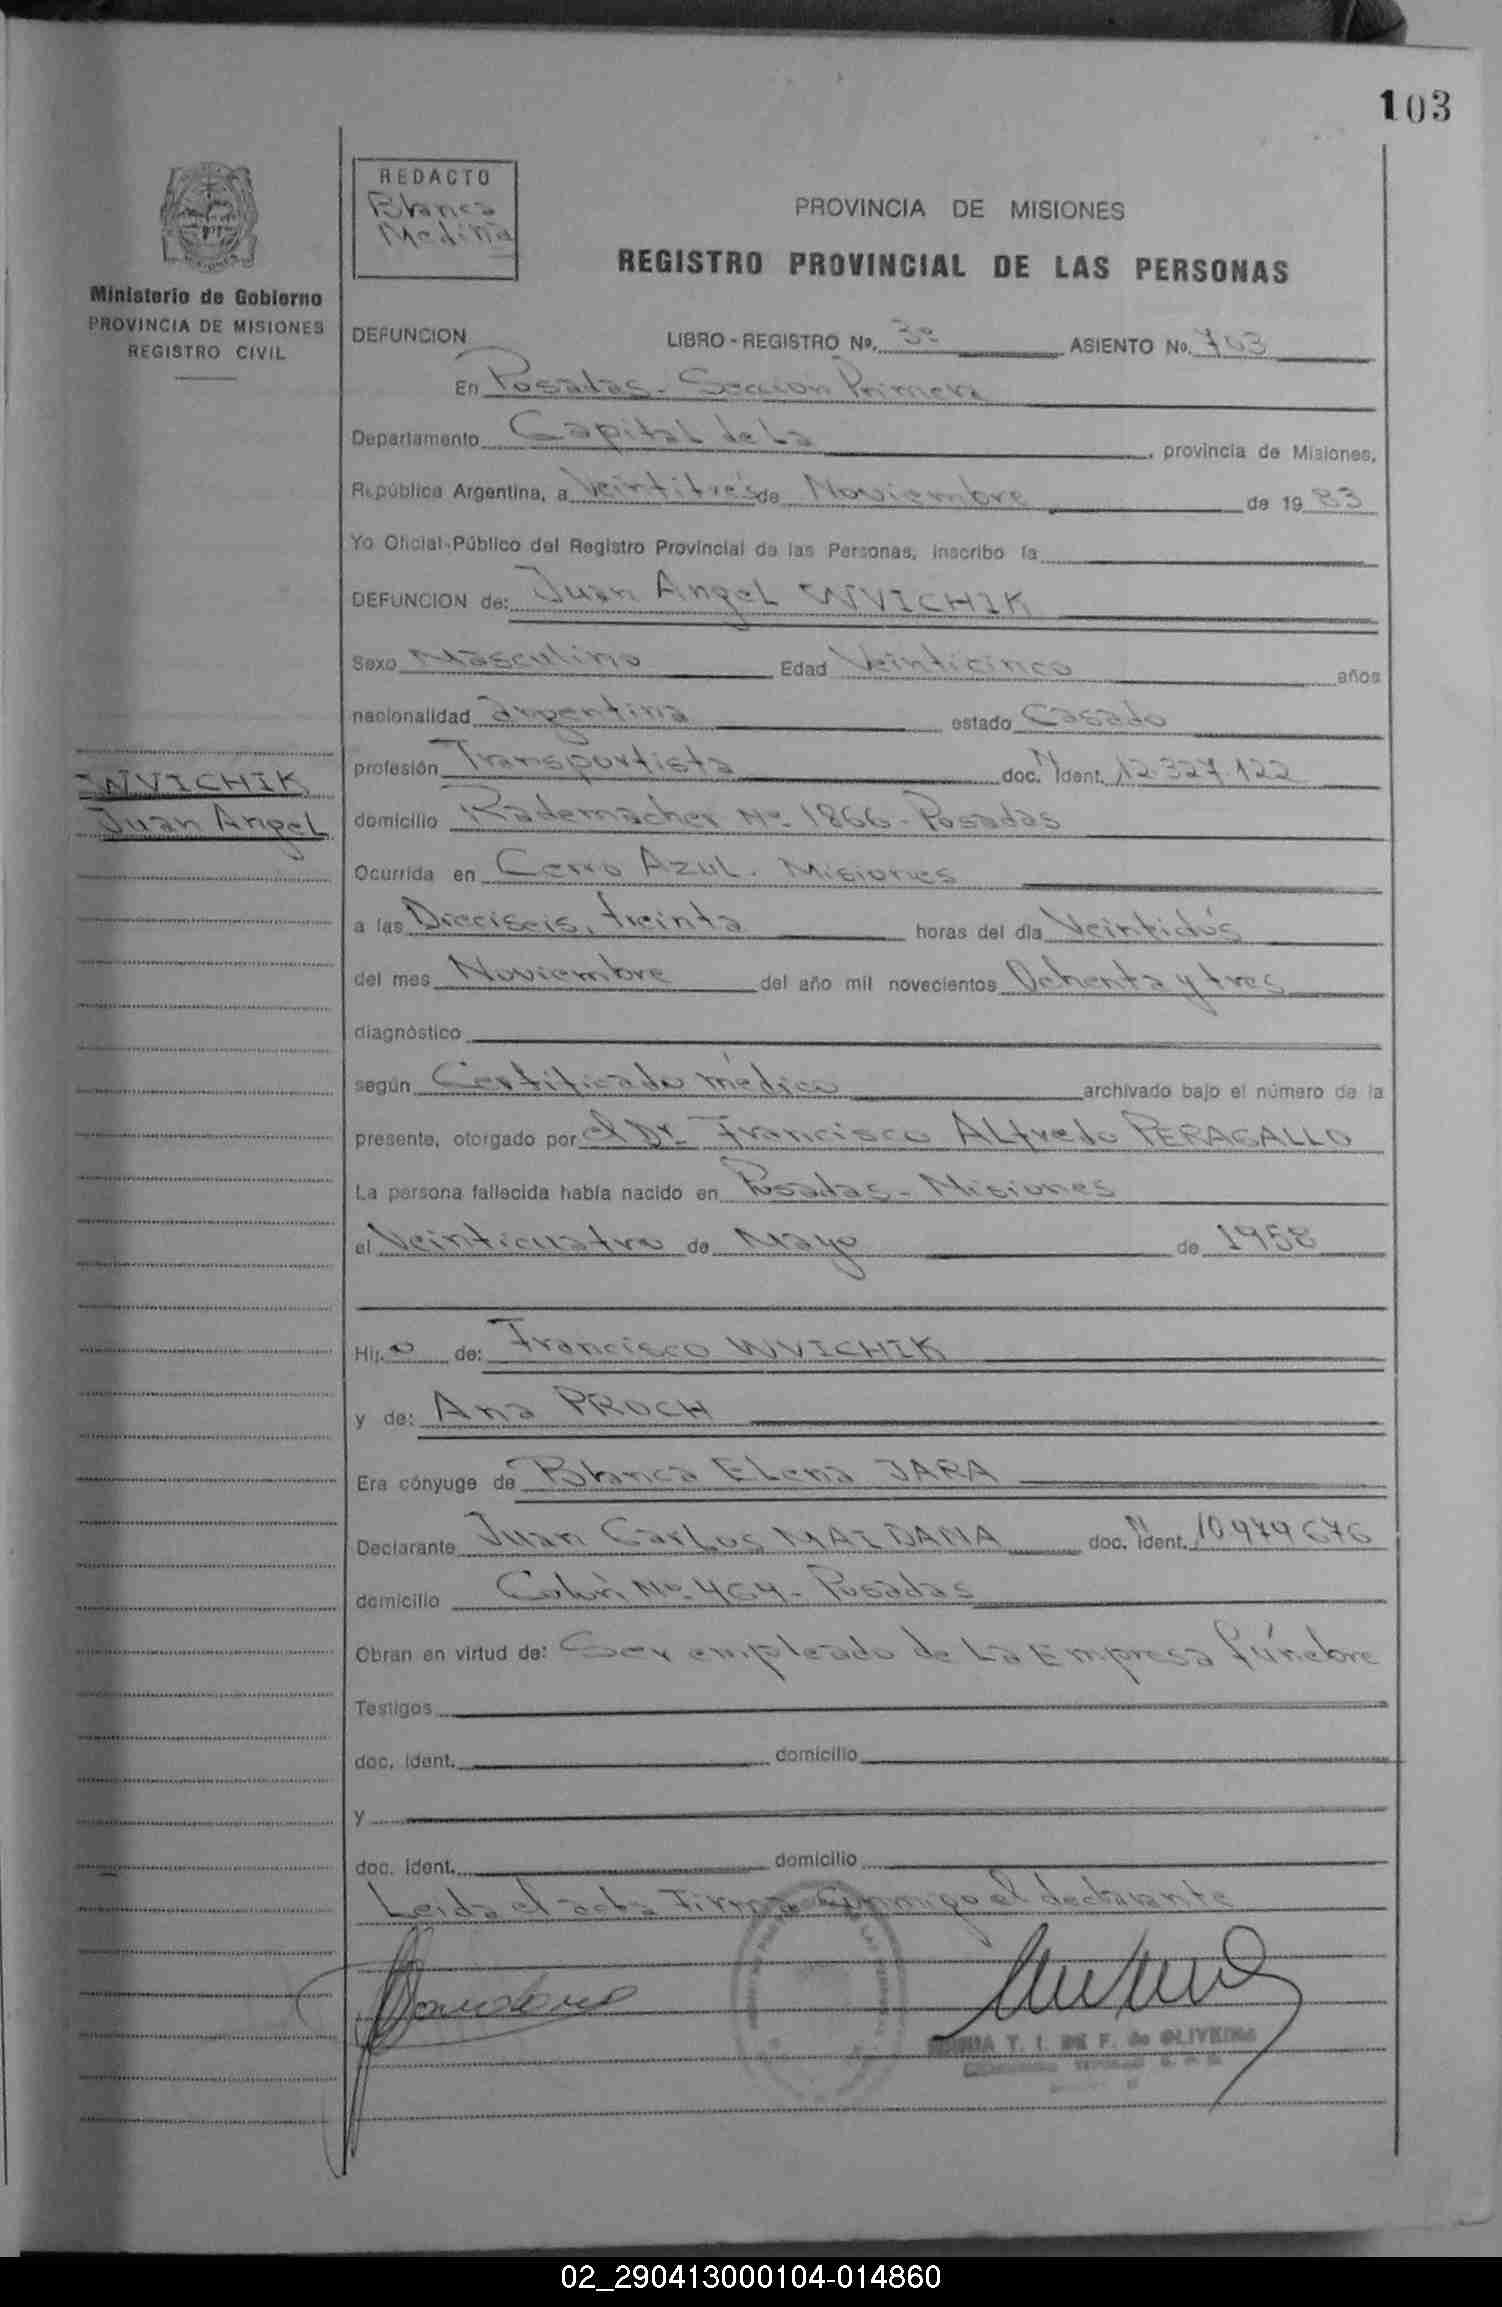 103
REDACTO
Blanca
Medina
PROVINCIA DE MISIONES
REGISTRO PROVINCIAL DE LAS PERSONAS
Ministerio de Gobierno
PROVINCIA DE MISIONES
REGISTRO CIVIL
DEFUNCION LIBRO-REGISTRO Nº. 3º ASIENTO Nº. 703
En Posadas - Sección Primera
Departamento Capital de La , provincia de Misiones,
República Argentina, a Veintitrés de Noviembre de 19 83
Yo Oficial Público del Registro Provincial de las Personas, inscribo la
DEFUNCION de: Juan Angel WVICHIK
Sexo Masculino Edad Veinticinco años
nacionalidad argentina estado Casado
profesión Transportista doc. N Ident. 12.327.122
WVICHIK
Juan Angel
domicilio Rademacher Nº 1866 - Posadas
Ocurrida en Cerro Azul - Misiones
a las Dieciseis, treinta horas del día Veintidós
del mes Noviembre del año mil novecientos Ochenta y tres
diagnóstico
según Certificado médico archivado bajo el número de la
presente, otorgado por el Dr. Francisco Alfredo PERAGALLO
La persona fallecida había nacido en Posadas - Misiones
el Veinticuatro de Mayo de 1958
Hij o de: Francisco WVICHIK
y de: Ana PROCH
Era cónyuge de Blanca Elena JARA
Declarante Juan Carlos MAIDANA doc. N Ident. 10979676
domicilio Colón Nº 464 - Posadas
Obran en virtud de: Ser empleado de La Empresa fúnebre
Testigos
doc. Ident. domicilio
y
doc. Ident. domicilio
Leida el acta Firma Conmigo el declarante
T. I. DE F. de OLIVEIRA
02_290413000104-014860